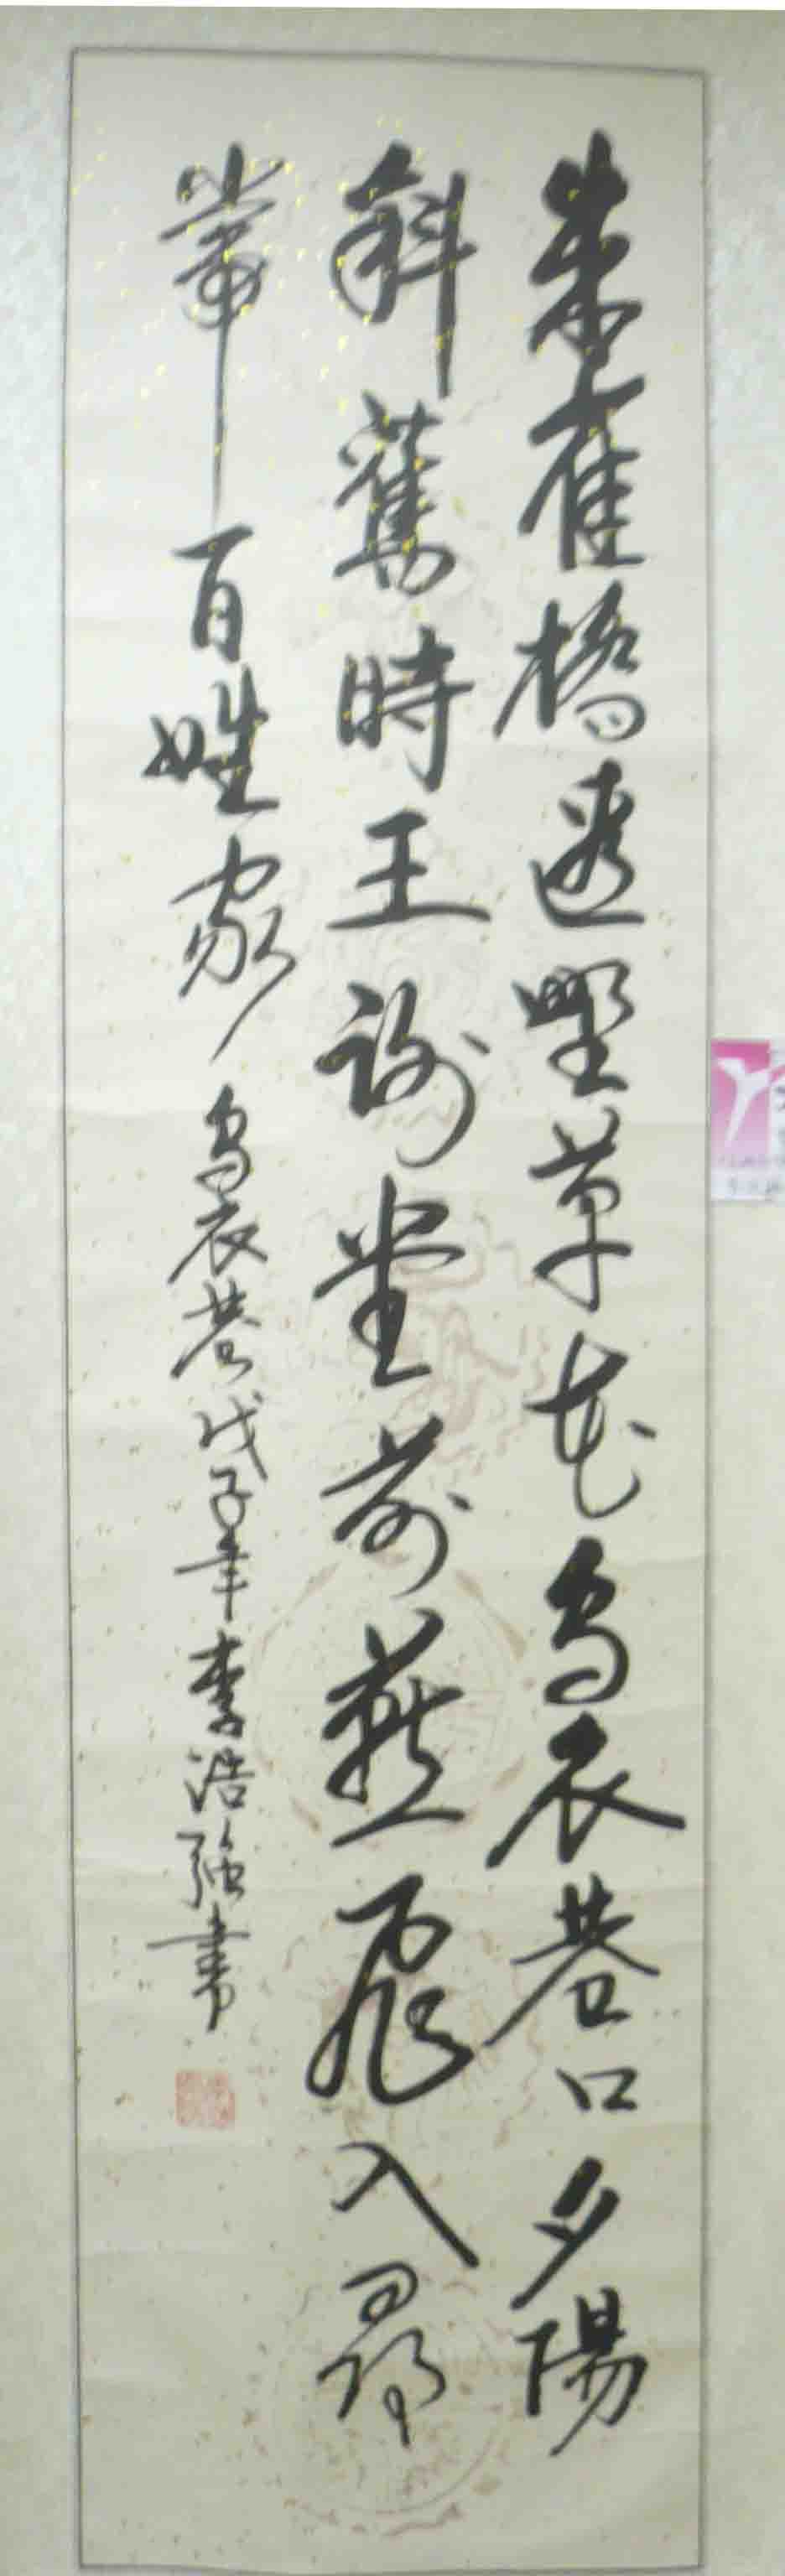 朱雀橋邊野草花烏衣巷口夕陽
斜舊時王謝堂前燕飛入尋
常百姓家 烏衣巷戊子年李浩強書